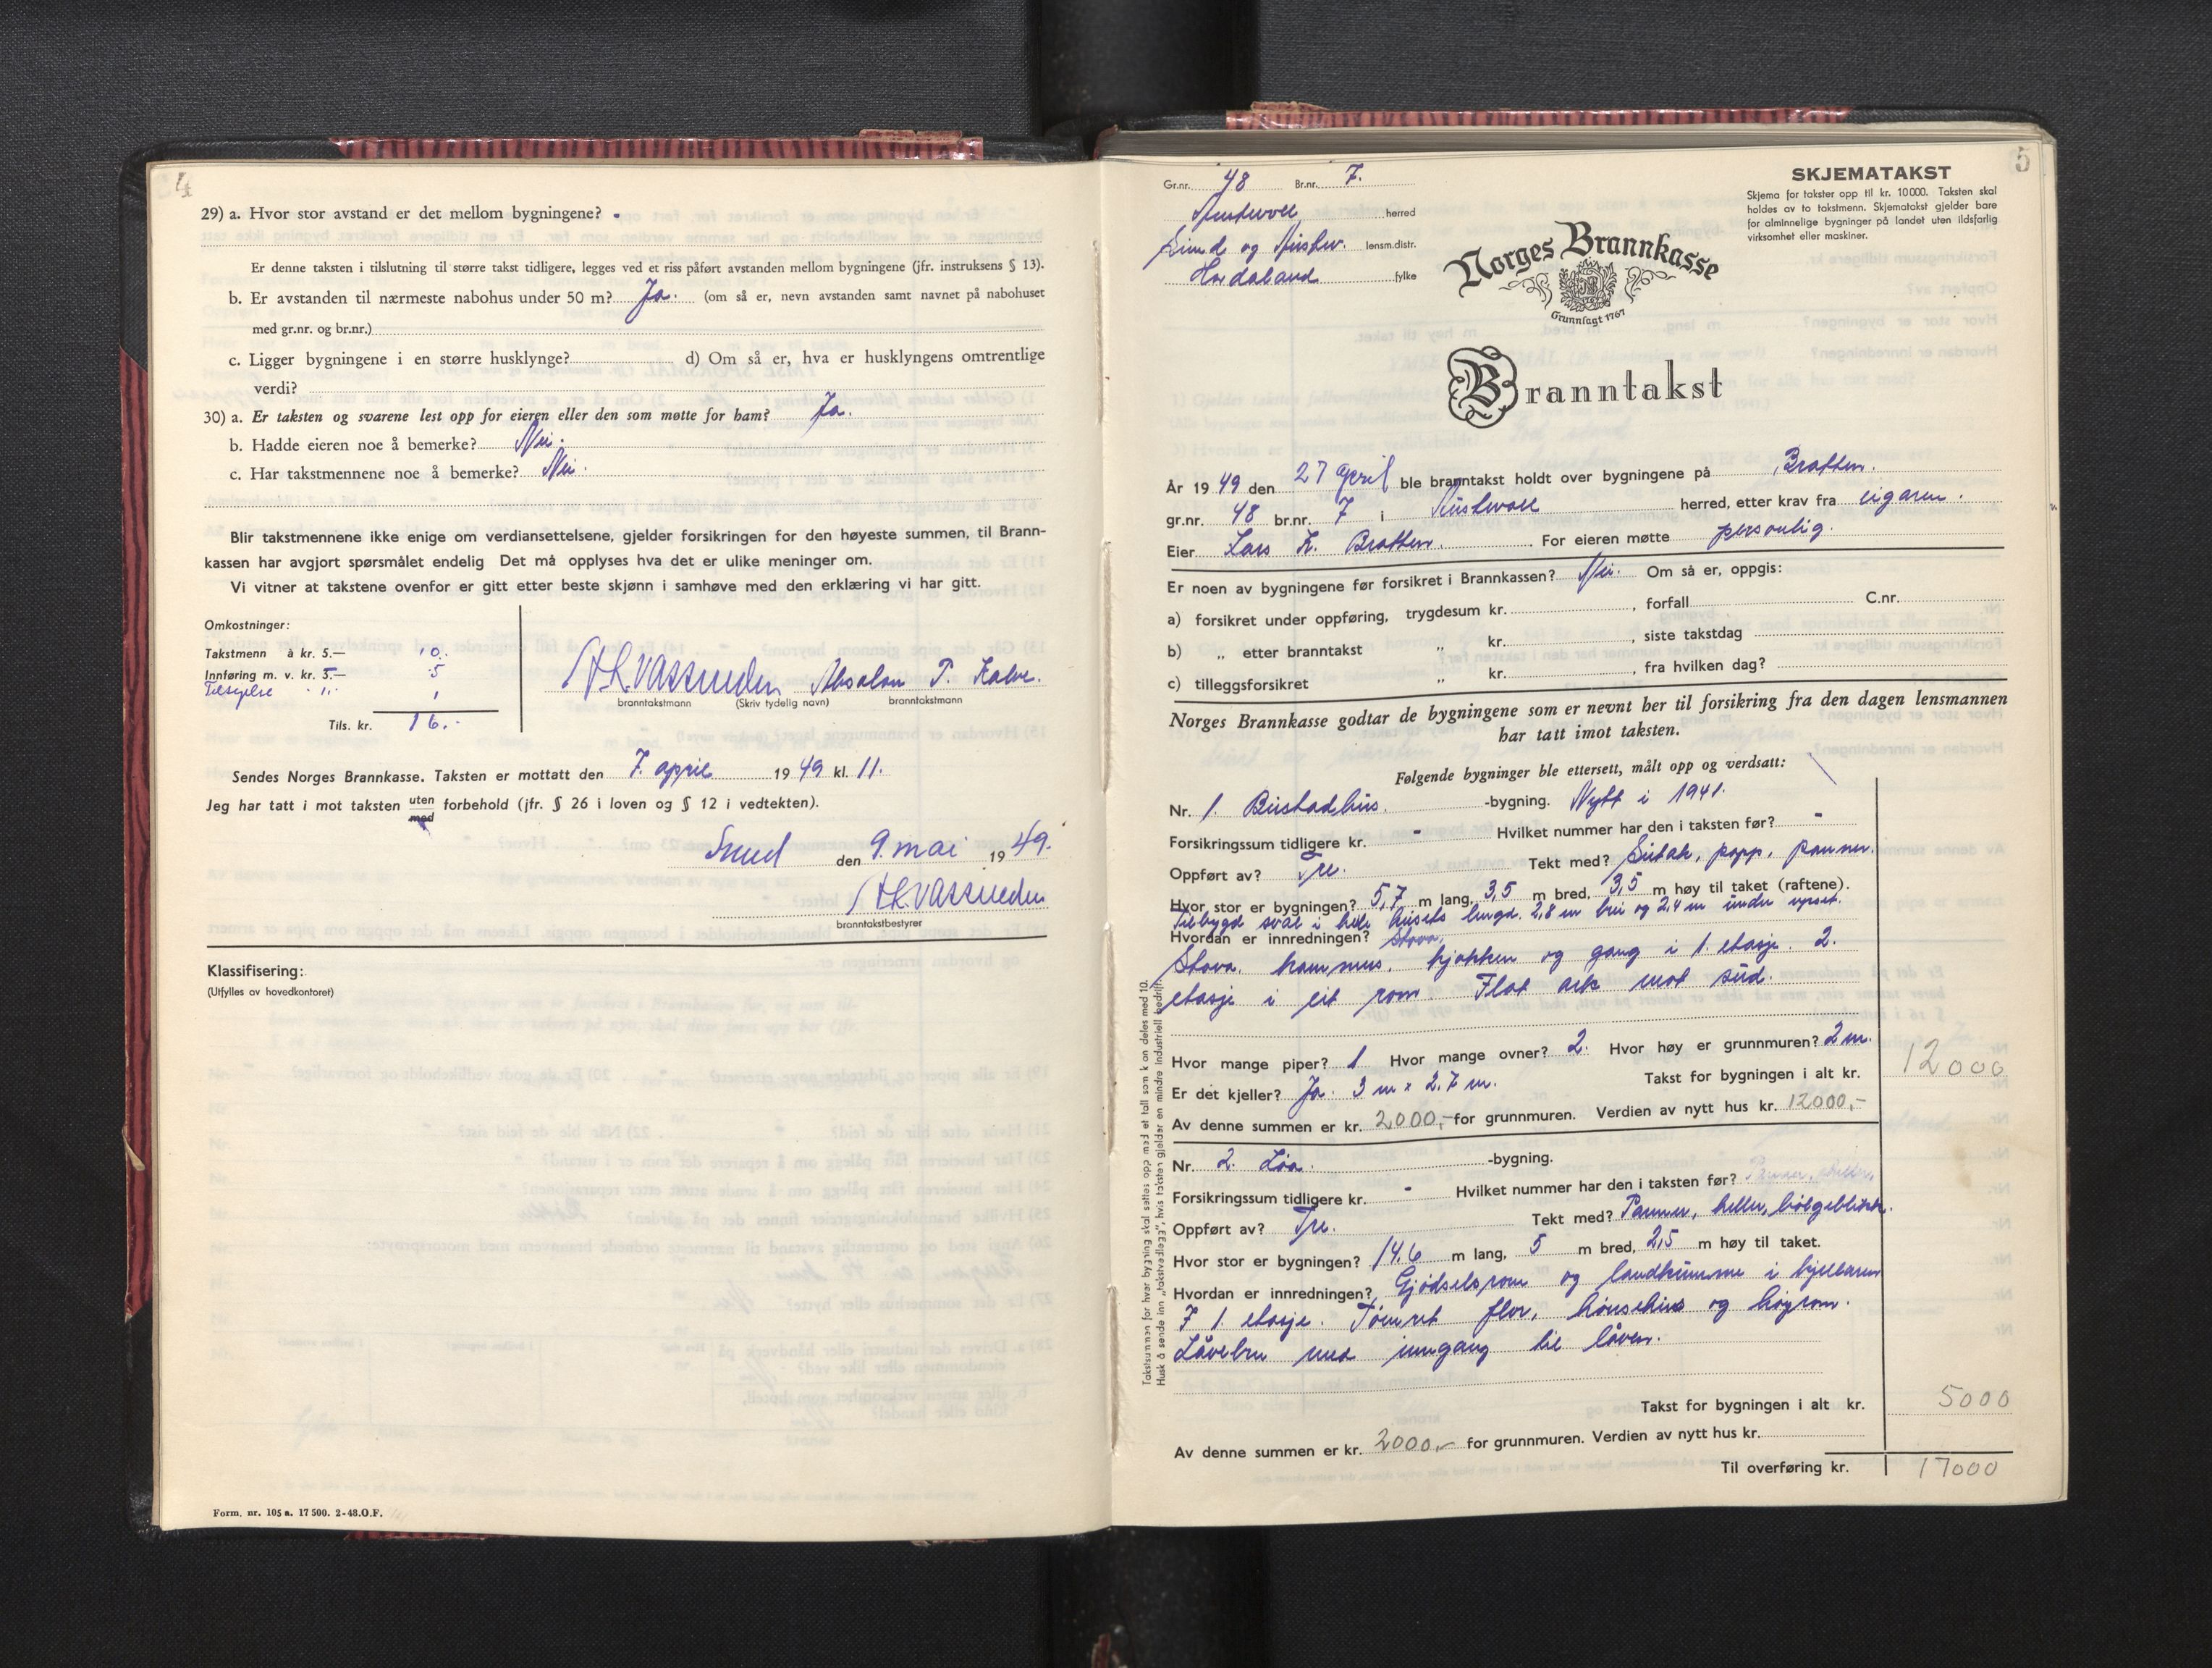 4
29) a. Hvor stor avstand er det mellom bygningene? -
Er denne taksten i tilslutning til større takst tidligere, legges ved et riss påført avstanden mellom bygningene (jfr. instruksens § 13).
b. Er avstanden til nærmeste nabohus under 50 m? Ja. (om så er, nevn avstanden samt navnet på nabohuset
med gr.nr. og br.nr.)
c. Ligger bygningene i en større husklynge? d) Om så er, hva er husklyngens omtrentlige
verdi?
30) a. Er taksten og svarene lest opp for eieren eller den som møtte for ham? Ja.
b. Hadde eieren noe å bemerke? Nei.
c. Har takstmennene noe å bemerke? Nei.
Blir takstmennene ikke enige om verdiansettelsene, gjelder forsikringen for den høyeste summen, til Brann-
kassen har avgjort spørsmålet endelig Det må opplyses hva det er ulike meninger om.
Vi vitner at takstene ovenfor er gitt etter beste skjønn i samhøve med den erklæring vi har gitt.
Omkostninger:
Takstmenn à kr. 5.— 10.
Innføring m. v. kr. 5.— 5
1
Tils. kr. 16.-
Absalon T. Kalve.
branntakstmann (Skriv tydelig navn) branntakstmann
Sendes Norges Brannkasse. Taksten er mottatt den 7. april 1949 kl. 11.
Jeg har tatt i mot taksten uten forbehold (jfr. § 26 i loven og § 12 i vedtekten).
med
Sund den 9. mai 1949.
branntakstbestyrer
Klassifisering:
(Utfylles av hovedkontoret)
Form. nr. 105 a. 17 500. 2-48.O.F.
5
Gr.nr. 48 Br.nr. 7.
Austevoll herred
Sund og Austev. lensm.distr.
Hordaland fylke
SKJEMATAKST
Skjema for takster opp til kr. 10 000. Taksten skal
holdes av to takstmenn. Skjematakst gjelder bare
for alminnelige bygninger på landet uten ildsfarlig
virksomhet eller maskiner.
Norges Brannkasse
Grunnlagt 1767
Branntakst
År 1949 den 27 April ble branntakst holdt over bygningene på Bratten.
gr.nr. 48 br.nr. 7 i Austevoll herred, etter krav fra eigaren.
Eier Lars K. Bratten. For eieren møtte personlig.
Er noen av bygningene før forsikret i Brannkassen? Nei. Om så er, oppgis:
a) forsikret under oppføring, trygdesum kr. , forfall C.nr.
b) „ etter branntakst „ kr. , siste takstdag
c) tilleggsforsikret „ kr. , fra hvilken dag?
Norges Brannkasse godtar de bygningene som er nevnt her til forsikring fra den dagen lensmannen
har tatt imot taksten.
Følgende bygninger ble ettersett, målt opp og verdsatt:
Nr. 1. Bustadhus. -bygning. Nytt i 1941.
Forsikringssum tidligere kr. - Hvilket nummer har den i taksten før? -
Oppført av? Tre. Tekt med? Sutak, papp, panner.
Hvor stor er bygningen? 5,7 m lang, 3,5 m bred, 3,5 m høy til taket (raftene).
Tilbygd sval i hele husets lengd. 2,8 m brei og 2,4 m under upset.
Hvordan er innredningen? Stova,
Stova, kammers, kjøkken og gang i 1. etasje. 2.
etasje i eit rom. Flat ark mot sud.
Hvor mange piper? 1 Hvor mange ovner? 2. Hvor høy er grunnmuren? 2 m.
Er det kjeller? Ja. 3 m x 2,7 m. Takst for bygningen i alt kr. 12000
Av denne summen er kr. 2000,- for grunnmuren. Verdien av nytt hus kr. 12000,-
Nr. 2. Løa. -bygning.
Forsikringssum tidligere kr. - Hvilket nummer har den i taksten før? Panner, heller,
Oppført av? Tre. Tekt med? Panner, heller, bølgeblikk.
Hvor stor er bygningen? 14.6 m lang, 5 m bred, 2,5 m høy til taket.
Hvordan er innredningen? Gjødselsrom og landkumme i kjellaren
I 1. etasje. Tømret flor, hønsehus og høyrom.
Låvebru med inngang til låven.
Takst for bygningen i alt kr. 5000
Av denne summen er kr. 2000,- for grunnmuren. Verdien av nytt hus kr.
Til overføring kr. 17000
Takstsummen for hver bygning skal settes opp med et tall som kan deles med 10.
Husk å sende inn „takstvedlegg”, hvis taksten gjelder en mindre industriell bedrift.